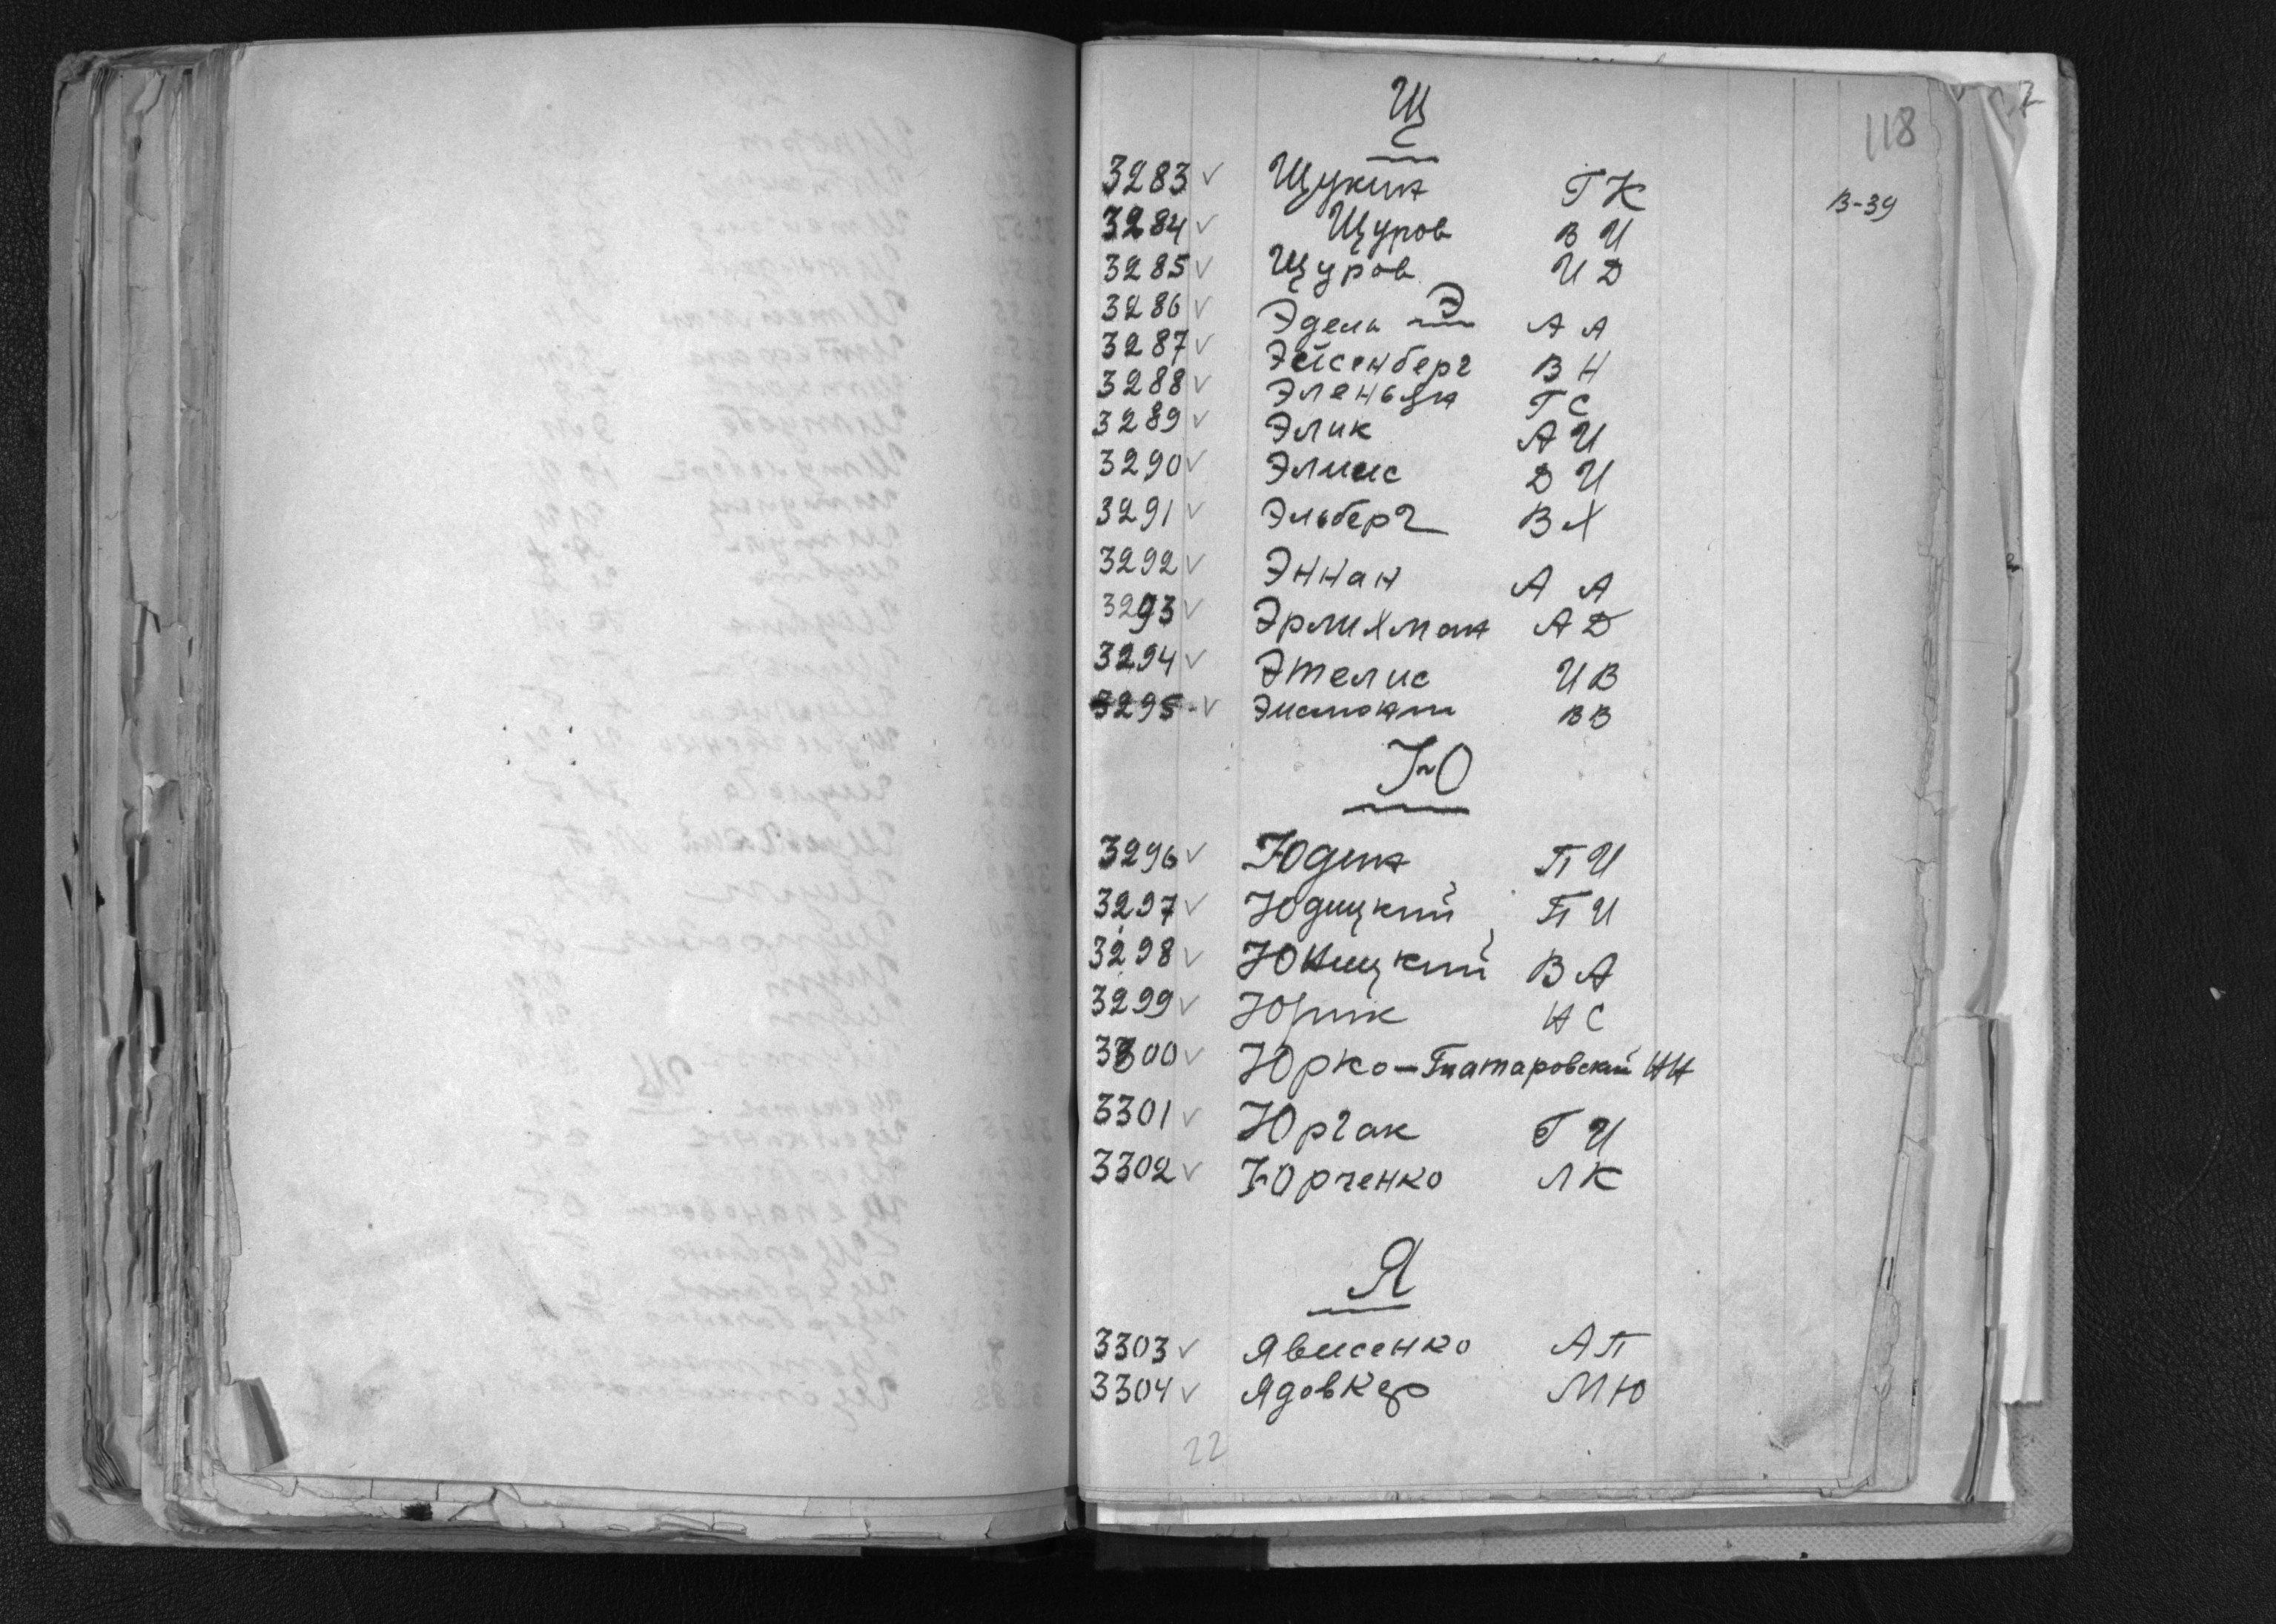 118
Щ
3283 ✓ Щукин Г К В-39
3284 ✓ Щуров В И
3285 ✓ Щуров И Д
Э
3286 ✓ Эдель А А
3287 ✓ Эйсенберг В Н
3288 ✓ Г С
3289 ✓ Элик А И
3290 ✓ Элиис Д И
3291 ✓ Эльберг В Х
3292 ✓ Эннан А А
3293 ✓ Эрлихман А Д
3294 ✓ Этелис И В
3295 ✓ В В
Ю
3296 ✓ Юдин П И
3297 ✓ Юдицкий П И
3298 ✓ Юницкий В А
3299 ✓ Юрик Н С
3300 ✓ Юрко-Гнатаровский НН
3301 ✓ Юргак Г И
3302 ✓ Юрченко Л К
Я
3303 ✓ Явисенко А П
3304 ✓ Ядовкер М Ю
22